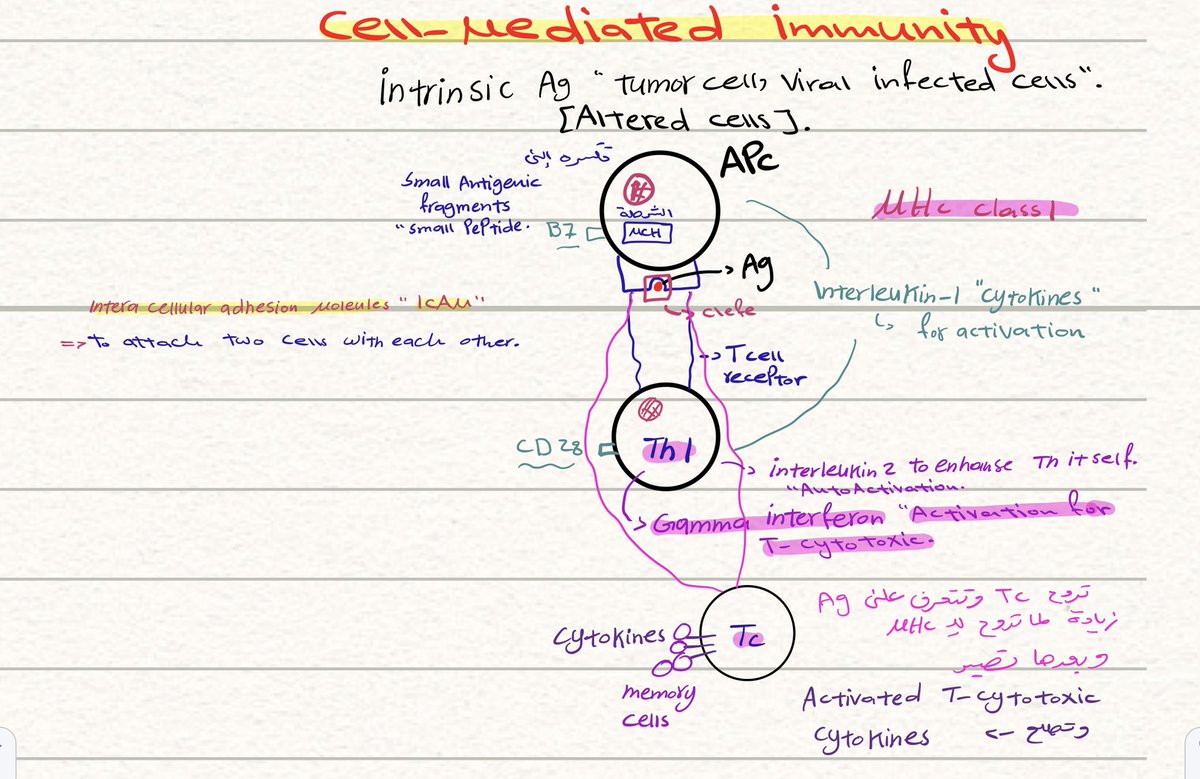 Cell-Mediated immunity
intrinsic Ag "tumor cell, Viral infected cells".
[Altered cells].
APC
تكسره إلى
Small Antigenic
fragments
"small Peptide.
الشرطة
MCH
B7
MHc class I
Ag
clefe
Interleukin-1 "cytokines"
for activation
Intera cellular adhesion Molecules "ICAM"
=> to attach two cells with each other.
T cell
receptor
CD 28
Th1
interleukin 2 to enhanse Th itself.
"Auto Activation.
Gamma interferon "Activation for
T-cytotoxic.
تروح Tc وتتعرف على Ag
زيادة لما تروح لـ MHc
وبعدها تصير
Activated T-cytotoxic
cytokines <-
Tc
Cytokines
memory
cells